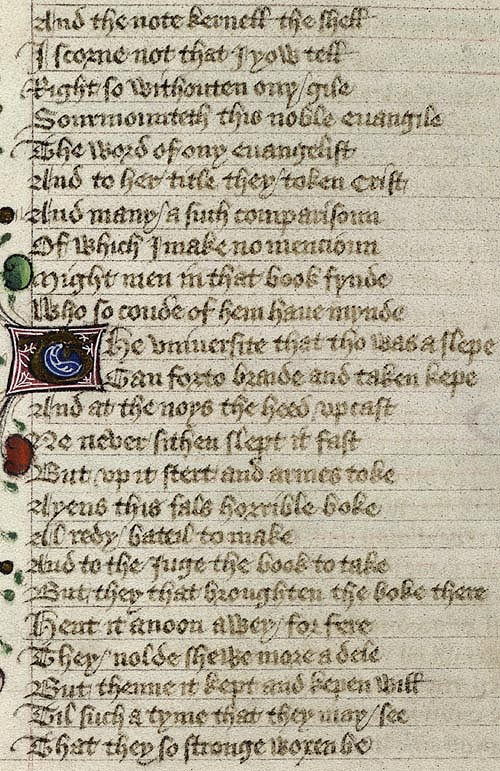 And the note kernell the shell
I scorne not that I yow tell
Right so withouten ony gile
Sourmounteth this noble euangile
The word of ony euangelist
And to her title they token Crist
And many a such comparisoun
Of which I make no mencioun
Might men in that book fynde
Who so coude of hem haue mynde
The vniuersite that tho was a slepe
Gan forto braide and taken kepe
And at the noys the heed vpcast
Ne never sithen slept it fast
But vp it stert and armes toke
Ayens this fals horrible boke
Al redy bateil to make
And to the Juge the book to take
But they that broughten the boke there
Hent it anoon awey for fere
They nolde shewe more a dele
But thenne it kept and kepen will
Til such a tyme that they may see
That they so stronge woxen be